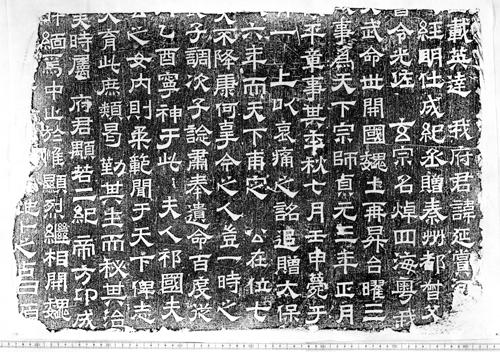 載英達 我府君諱延賞河
經明仕成紀丞贈秦州都督父
書令光佐 玄宗名焯四海粵我
武命世開國魏土再昇台曜三
事為天下宗師貞元三年正月
平章事其年秋七月壬申薨于
一 上以哀痛之詔追贈太保
六年而天下甫定 公在位七
天不降康何享令之人豈一時之
子調次子諗肅奉遺命百度從
乙酉寧神于此 夫人祁國夫
之女內則柔範聞于天下俾志
人育此庶類曷勤其生而秘其治
矣時屬 府君顧若二紀帝方卬成
緬焉中止於惟顯烈繼相開魏